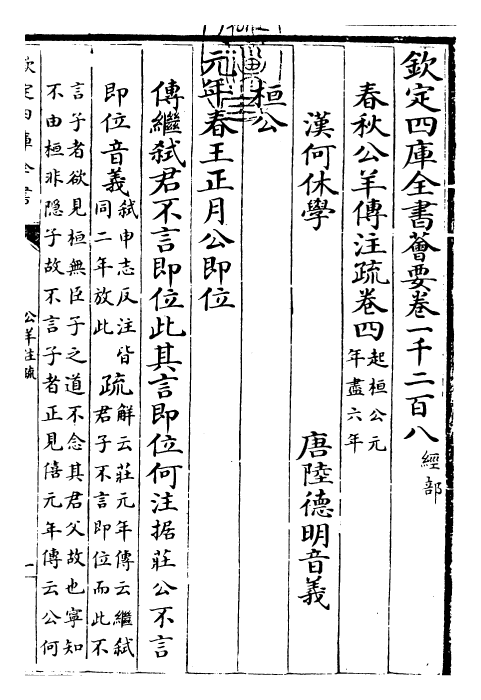 欽定四庫全書薈要卷一千二百八 經部
春秋公羊傳注疏卷四 起桓公元
年盡六年
漢何休學 唐陸德明音義
桓公
元年春王正月公即位
傳繼弑君不言即位此其言即位何注据莊公不言
即位音義 弑申志反注皆
同二年放此 疏 解云莊元年傳云繼弑
君子不言即位而此不
言子者欲見桓無臣子之道不念其君父故也寧知
不由桓非隐子故不言子者正見僖元年傳云公何
欽定四庫全書
公羊注疏
一